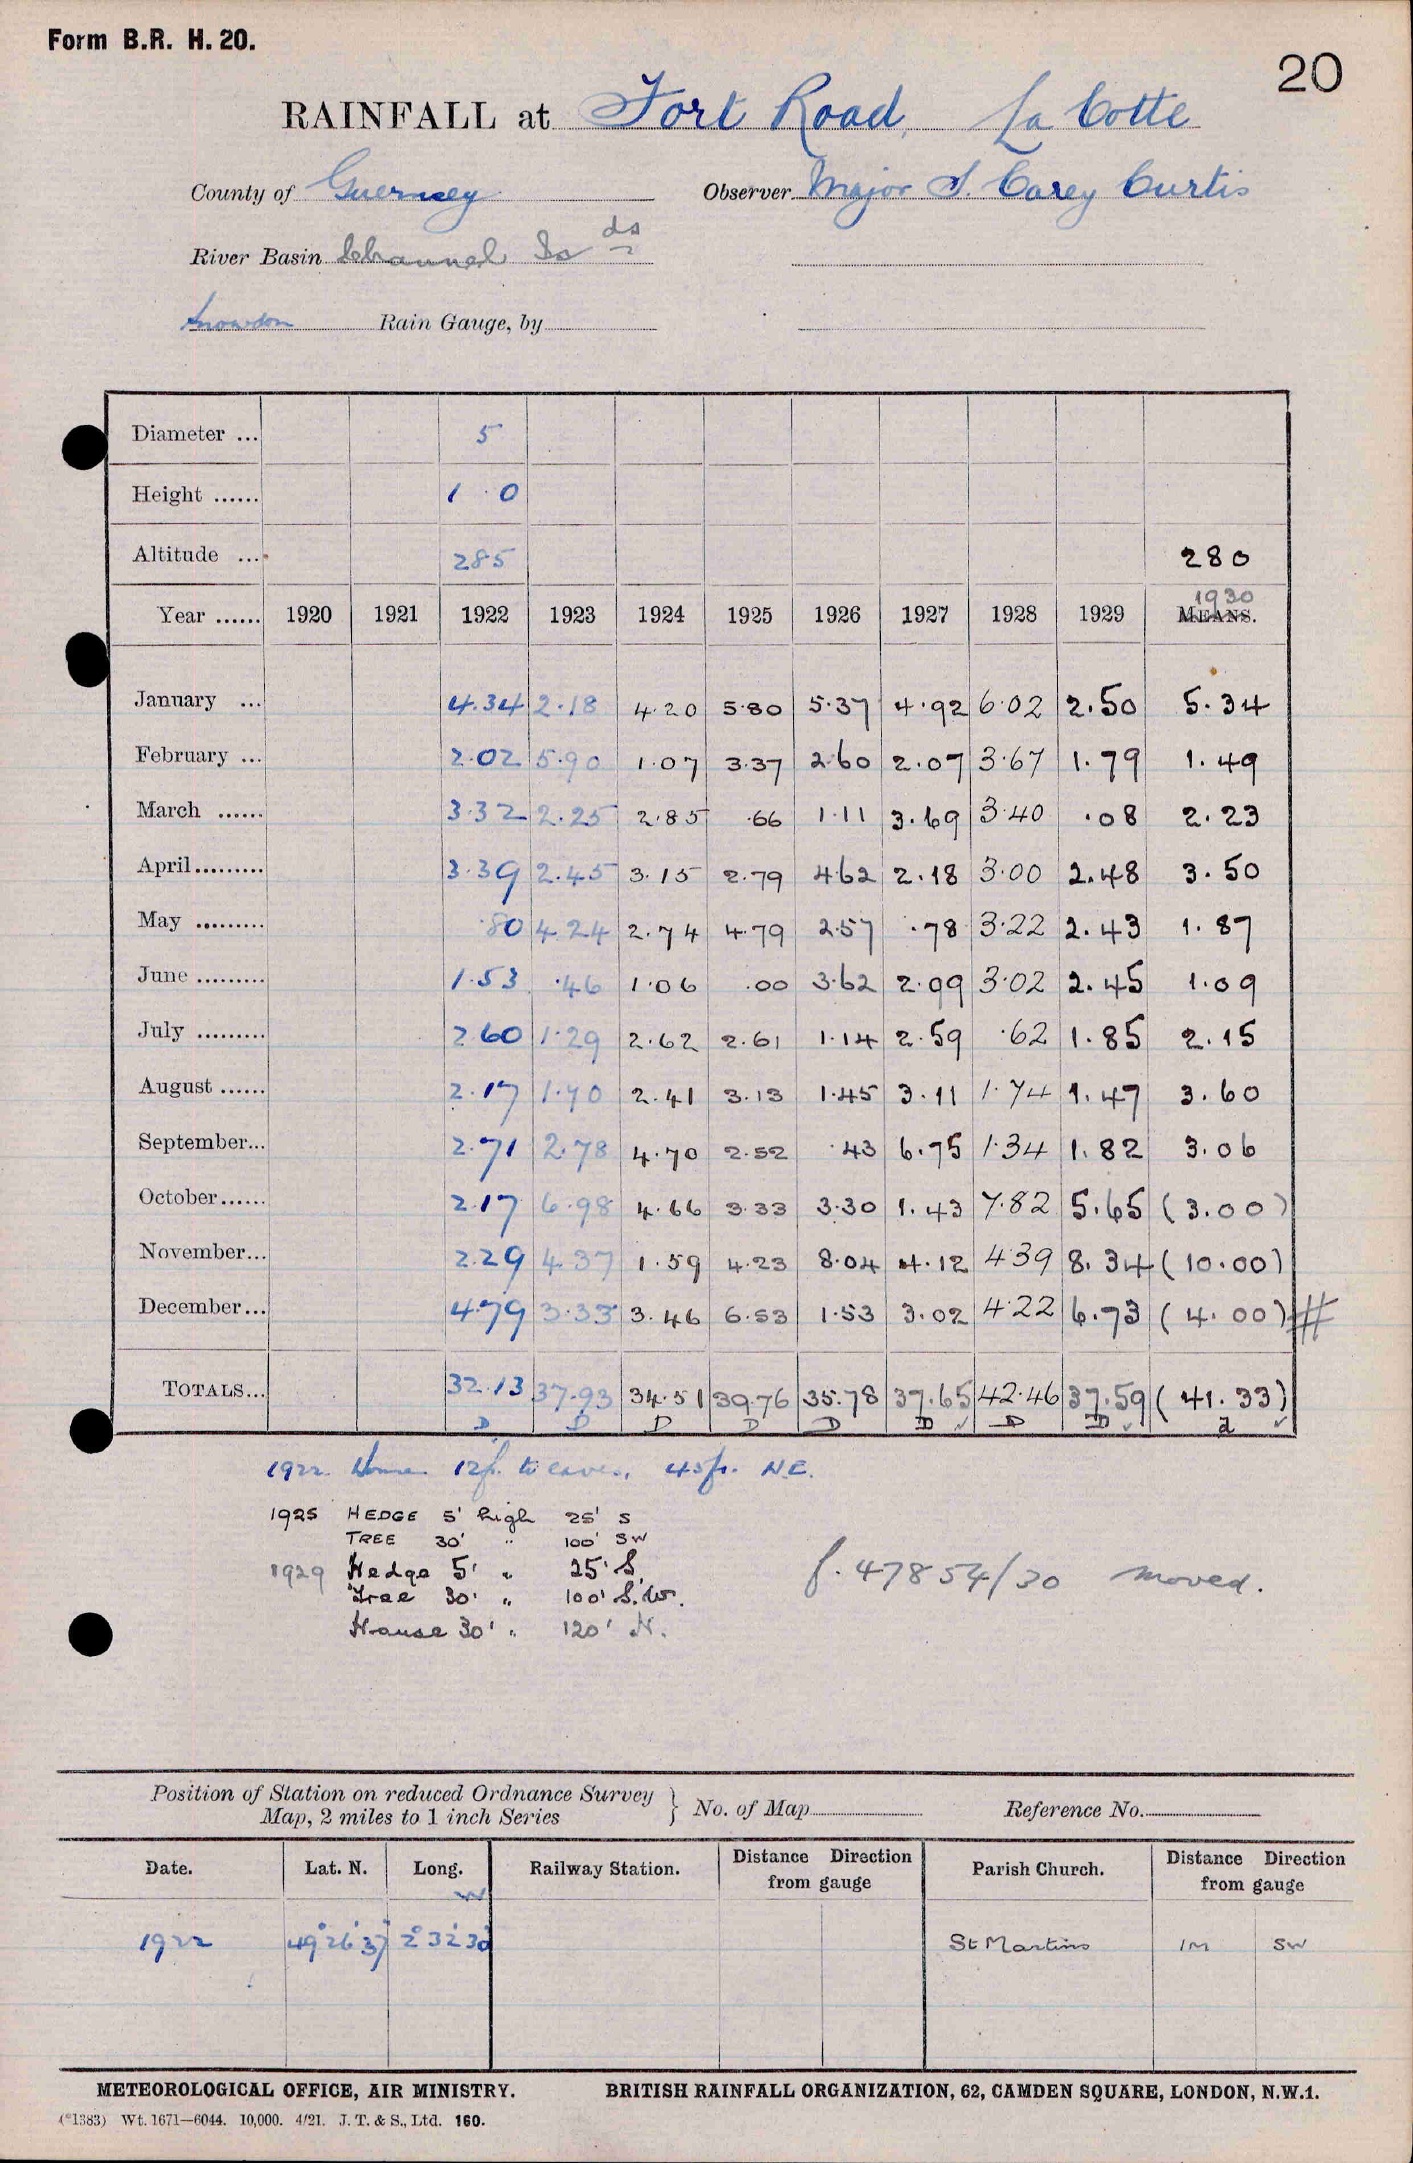 Form B.R. H. 20.
20
RAINFALL at Fort Road, La Cotte
County of Guernsey Observer Major S. Carey Curtis
River Basin Channel Is ds
Snowdon Rain Gauge, by
Diameter ... 5
Height ...... 1 . 0
Altitude ... 285 280
1930
Year ...... 1920 1921 1922 1923 1924 1925 1926 1927 1928 1929 MEANS.
January ... 4.34 2.18 4.20 5.80 5.37 4.92 6.02 2.50 5.34
February ... 2.02 5.90 1.07 3.37 2.60 2.07 3.67 1.79 1.49
March ...... 3.32 2.25 2.85 .66 1.11 3.69 3.40 .08 2.23
April......... 3.39 2.45 3.15 2.79 4.62 2.18 3.00 2.48 3.50
May ......... .80 4.24 2.74 4.79 2.57 .78 3.22 2.43 1.87
June ......... 1.53 .46 1.06 .00 3.62 2.99 3.02 2.45 1.09
July ......... 2.60 1.29 2.62 2.61 1.14 2.59 .62 1.85 2.15
August ...... 2.17 1.70 2.41 3.13 1.45 3.11 1.74 1.47 3.60
September... 2.71 2.78 4.70 2.52 .43 6.75 1.34 1.82 3.06
October...... 2.17 6.98 4.66 3.33 3.30 1.43 7.82 5.65 (3.00)
November... 2.29 4.37 1.59 4.23 8.04 4.12 4.39 8.34 (10.00)
December... 4.79 3.33 3.46 6.53 1.53 3.02 4.22 6.73 (4.00) #
TOTALS... 32.13 37.93 34.51 39.76 35.78 37.65 42.46 37.59 (41.33)
D D D D D D ✓ D D ✓ ✓
1922 House 12ft. to eaves, 45ft. N.E.
1925 HEDGE 5' high 25' S
TREE 30' " 100' SW
1929 Hedge 5' " 25' S.
Tree 30' " 100' S.W.
House 30' " 120' N.
f. 47854/30 moved.
Position of Station on reduced Ordnance Survey
Map, 2 miles to 1 inch Series } No. of Map Reference No.
Date. Lat. N. Long. Railway Station. Distance Direction from gauge Parish Church. Distance Direction from gauge
W
1922 49° 26' 37" 2° 32' 30" St Martins 1M SW
METEOROLOGICAL OFFICE, AIR MINISTRY. BRITISH RAINFALL ORGANIZATION, 62, CAMDEN SQUARE, LONDON, N.W.1.
(*1383) Wt. 1671—6044. 10,000. 4/21. J. T. & S., Ltd. 160.